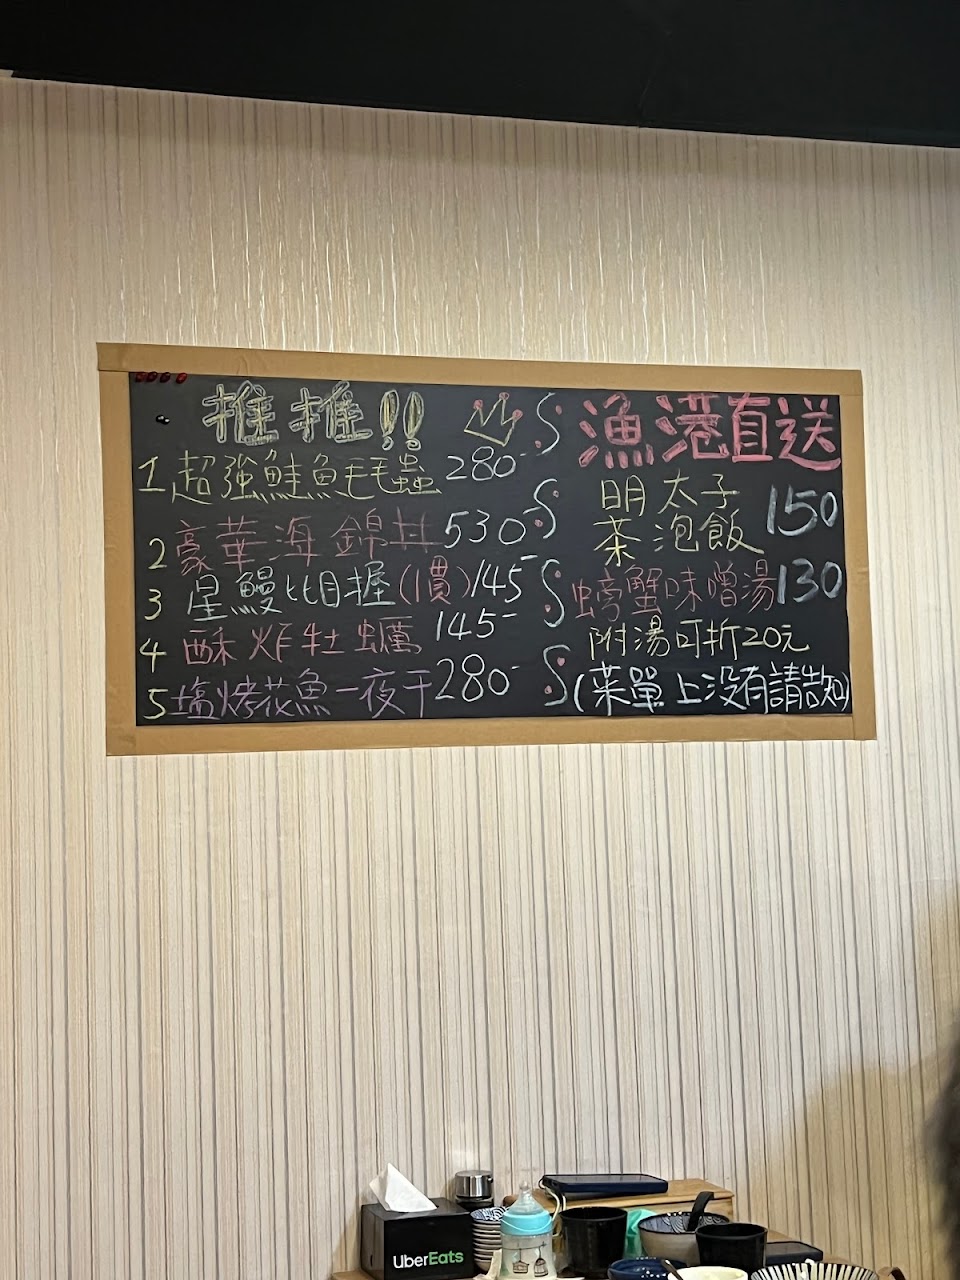 推推!!
1 超強鮭魚毛毛蟲 280
2 豪華海錦丼 530
3 星鰻比目握(1貫) 145
4 酥炸牡蠣 145
5 塩烤花魚一夜干 280
漁港直送
明太子
茶泡飯 150
螃蟹味噌湯 130
附湯可折20元
(菜單上沒有請告知)
UberEats